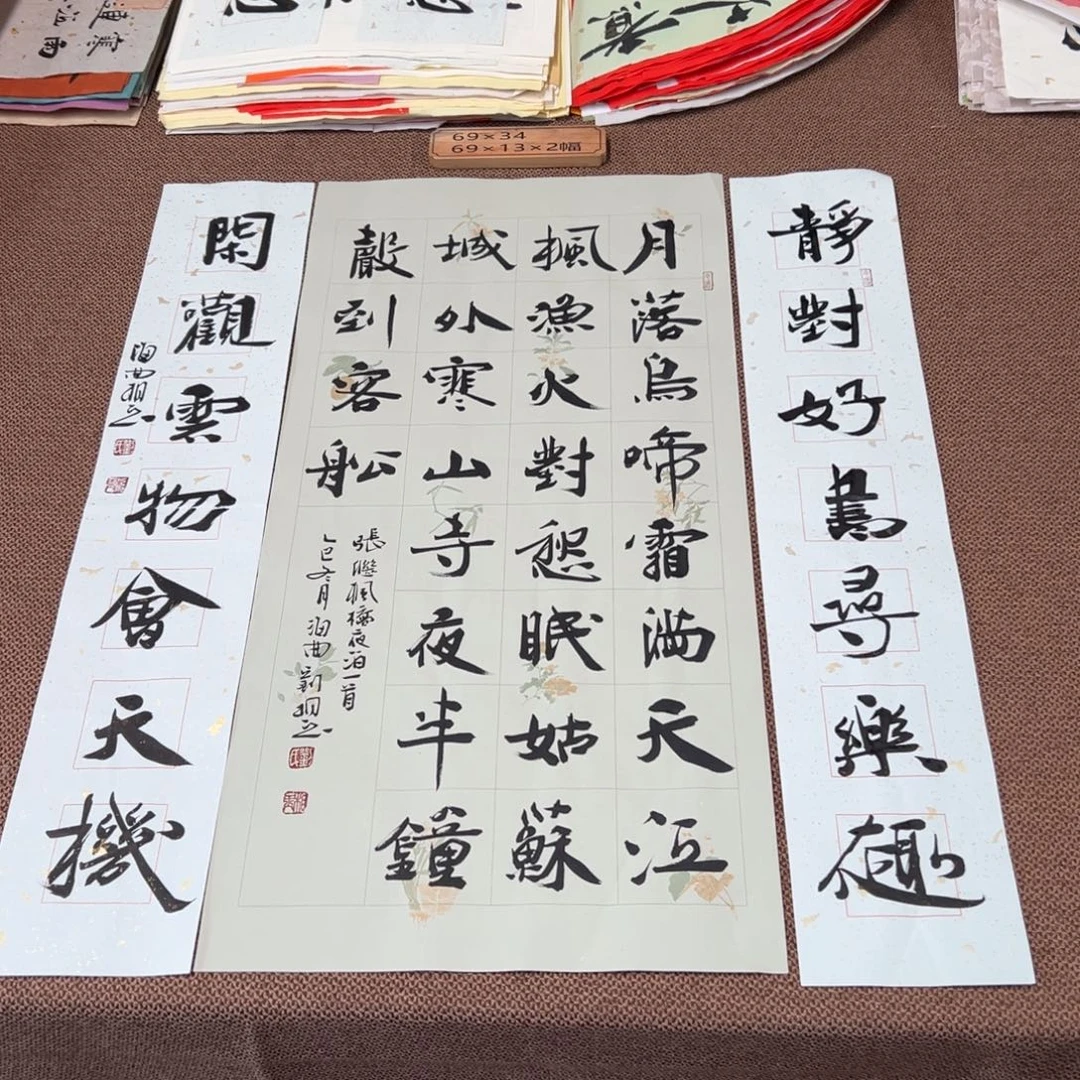 69×34
69×13×2幅
靜對好書尋樂趣
月落烏啼霜滿天江
楓漁火對愁眠姑蘇
城外寒山寺夜半鐘
聲到客舩
張繼楓橋夜泊一首
乙巳冬月
閑觀雲物會天機